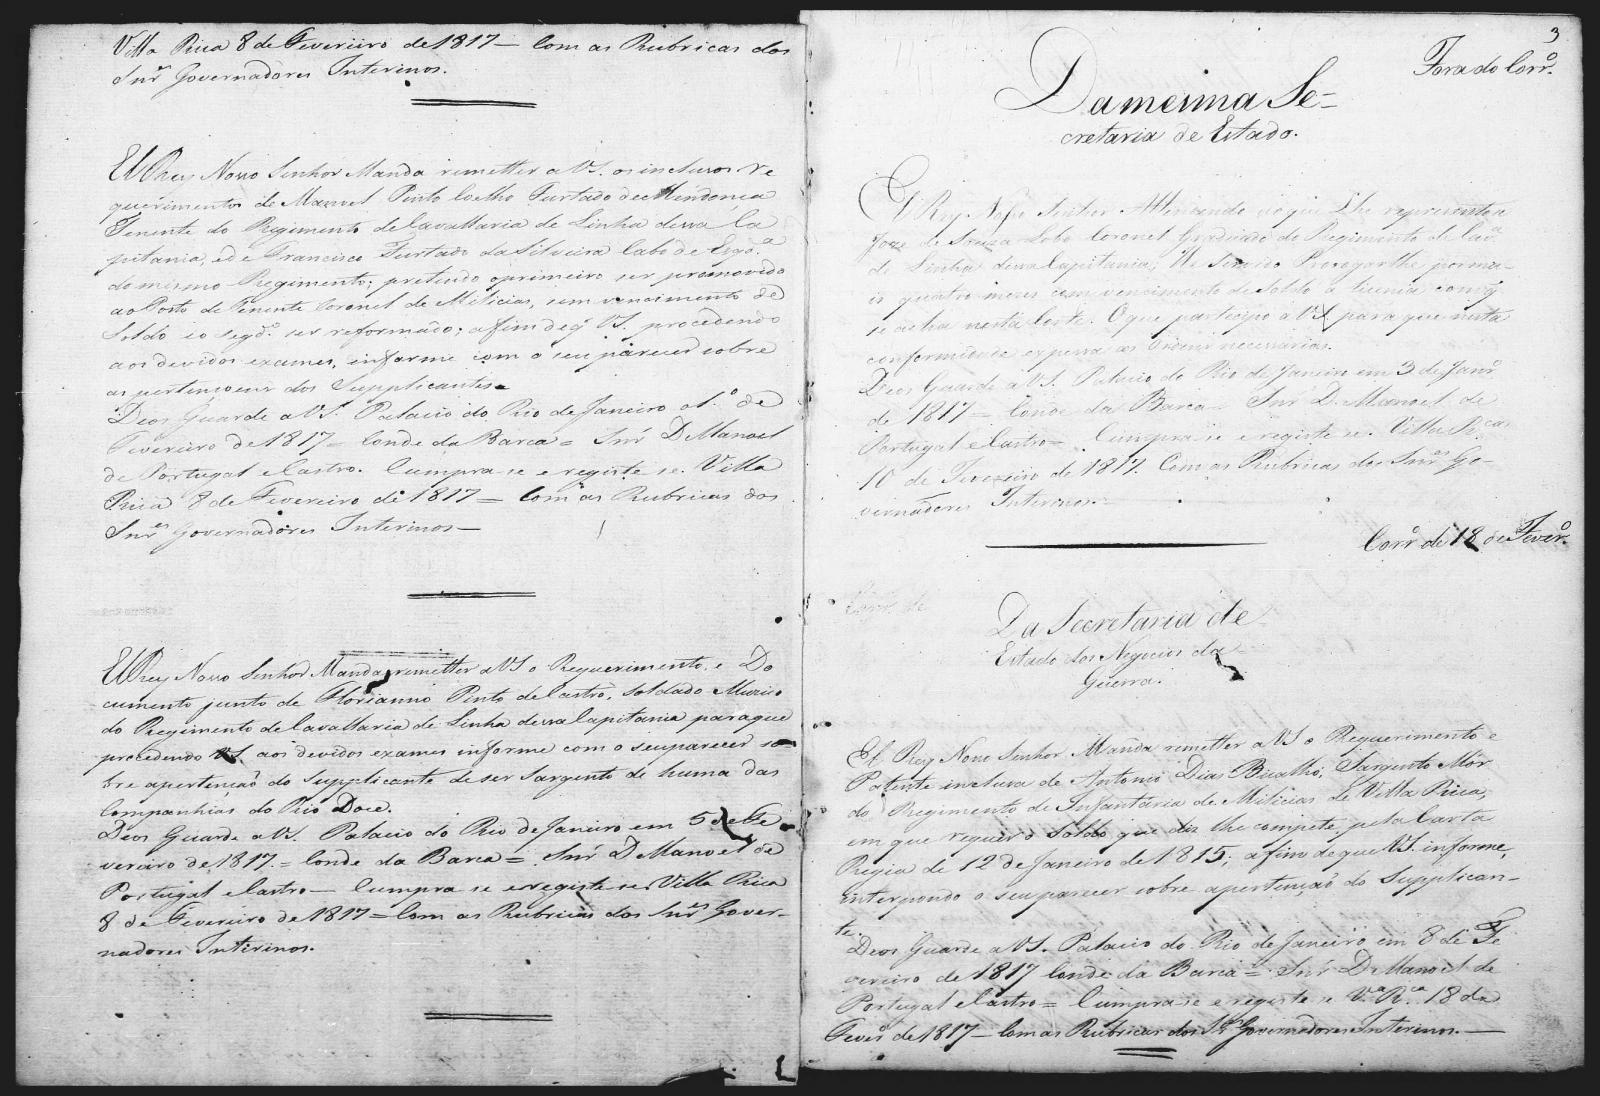 Villa Rica 8 de Fevereiro de 1817 — Com as Rubricas dos
Snr.es Governadores Interinos.
El Rey Nosso Senhor Manda remetter a VS. os inclusos re
querimentos de Manoel Pinto Coelho Furtado de Mendonca
Tenente do Regimento de Cavallaria de Linha dessa Ca
pitania, e de Francisco Furtado da Silveira Cabo de Esqd.ª
do mesmo Regimento; pretindo o primeiro ser promovido
ao Posto de Tenente Coronel de Milicias, sem vencimento de
Soldo e o segd.º ser reformado; afim de q̃ VS. procedendo
aos devidos exames, informe com o seu parecer sobre
as pertençoens dos Supplicantes.
Deos Guarde a VS. Palacio do Rio de Janeiro o 1.º de
Fevereiro de 1817 = Conde da Barca = Snr̃ D. Manoel
de Portugal e Castro. Cumpra-se e registe-se. Villa
Rica 8 de Fevereiro de 1817 = Com as Rubricas dos
Snr.es Governadores Interinos —
El Rey Nosso Senhor Manda remetter a VS o Requerimento, e Do
cumento junto de Florianno Pinto de Castro, Soldado Muzico
do Regimento de Cavallaria de Linha dessa Capitania para que
procedendo VS. aos devidos exames informe com o seu parecer so-
bre apertençaõ do Supplicante de ser Sargento de huma das
Companhias do Rio Doce.
Deos Guarde a VS. Palacio do Rio de Janeiro em 5 de Fe
vereiro de 1817. = Conde da Barca = Snr̃ D Manoel de
Portugal e Castro — Cumpra se e registe-se Villa Rica
8 de Fevereiro de 1817 = Com as Rubricas dos Snr.es Gover-
nadores Interinos.
3
Fora do Corr.º
Da mesma Se=
cretaria de Estado.
El Rey Nosso Senhor Attendendo ao que Lhe representou
Joze de Souza Lobo Coronel Graduado do Regimento de Cav.ª
de Linha dessa Capitania; He Servido Prorogarlhe por ma-
is quatro mezes com vencimento de Soldo a licença com q̃
se acha nesta Corte. O que participo a VS. para que nesta
conformidade expessa as Ordens necessarias.
Deos Guarde a VS. Palacio do Rio de Janeiro em 3 de Janr.º
de 1817 = Conde da Barca = Snr̃ D. Manoel de
Portugal e Castro = Cumpra-se e registe-se. Villa R.ca
10 de Fevereiro de 1817. Com as Rubricas dos Snr.es Go-
vernadores Interinos.
Corr.º de 18 de Fever.º
Da Secretaria de
Estado dos Negocios da
Guerra.
El Rey Nosso Senhor Manda remetter a VS o Requerimento e
Patente inclusa de Antonio Dias Bicalho, Sargento Mór
do Regimento de Infantaria de Milicias de Villa Rica,
em que requer o Soldo que diz lhe compete, pela Carta
Regia de 12 de Janeiro de 1815; afim de que VS. informe,
interpondo o seu parecer sobre apertençaõ do Supplican-
te.
Deos Guarde a VS. Palacio do Rio de Janeiro em 8 de Fe
vereiro de 1817 Conde da Barca = Snr̃ D Manoel de
Portugal e Castro = Cumpra-se e registe se V.ª R.ca 18 de
Fever.º de 1817 — Com as Rubricas dos S.res Governadores Interinos. —